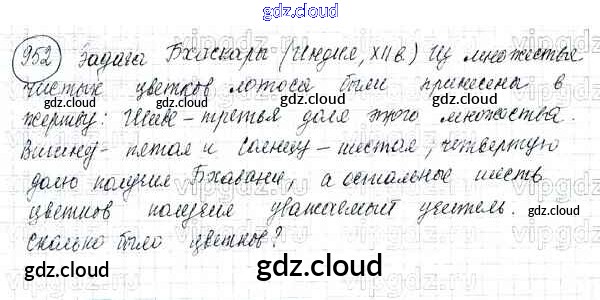 952 Задача Бхаскары (Индия, XII в.) Из множества
чистых цветков лотоса были принесена в
жертву: Шиве - третья доля этого множества.
Вишну - пятая и Солнцу - шестая, четвертую
долю получил Бхавани, а остальные шесть
цветков получил уважаемый учитель.
Сколько было цветков?
gdz.cloud
gdz.cloud
gdz.cloud
gdz.cloud
gdz.cloud
gdz.cloud
gdz.cloud